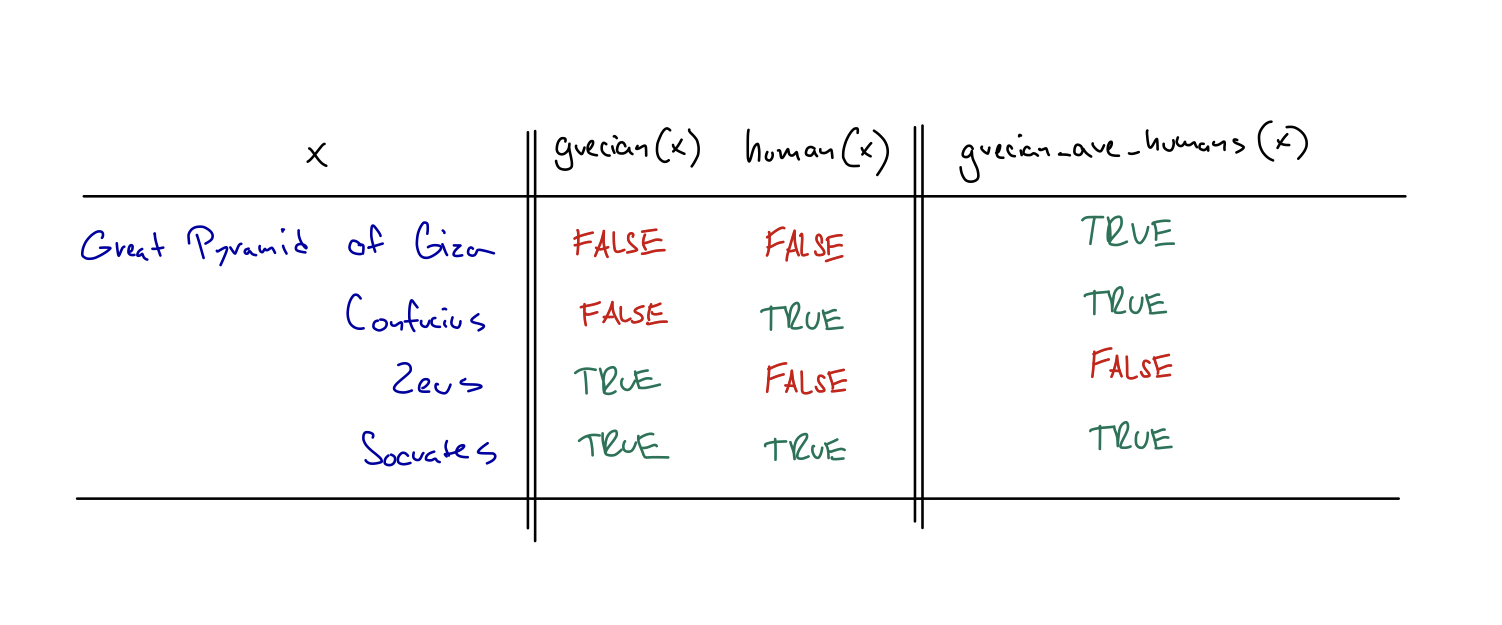 x grecian(x) human(x) grecian_are_humans(x)
Great Pyramid of Giza FALSE FALSE TRUE
Confucius FALSE TRUE TRUE
Zeus TRUE FALSE FALSE
Socrates TRUE TRUE TRUE